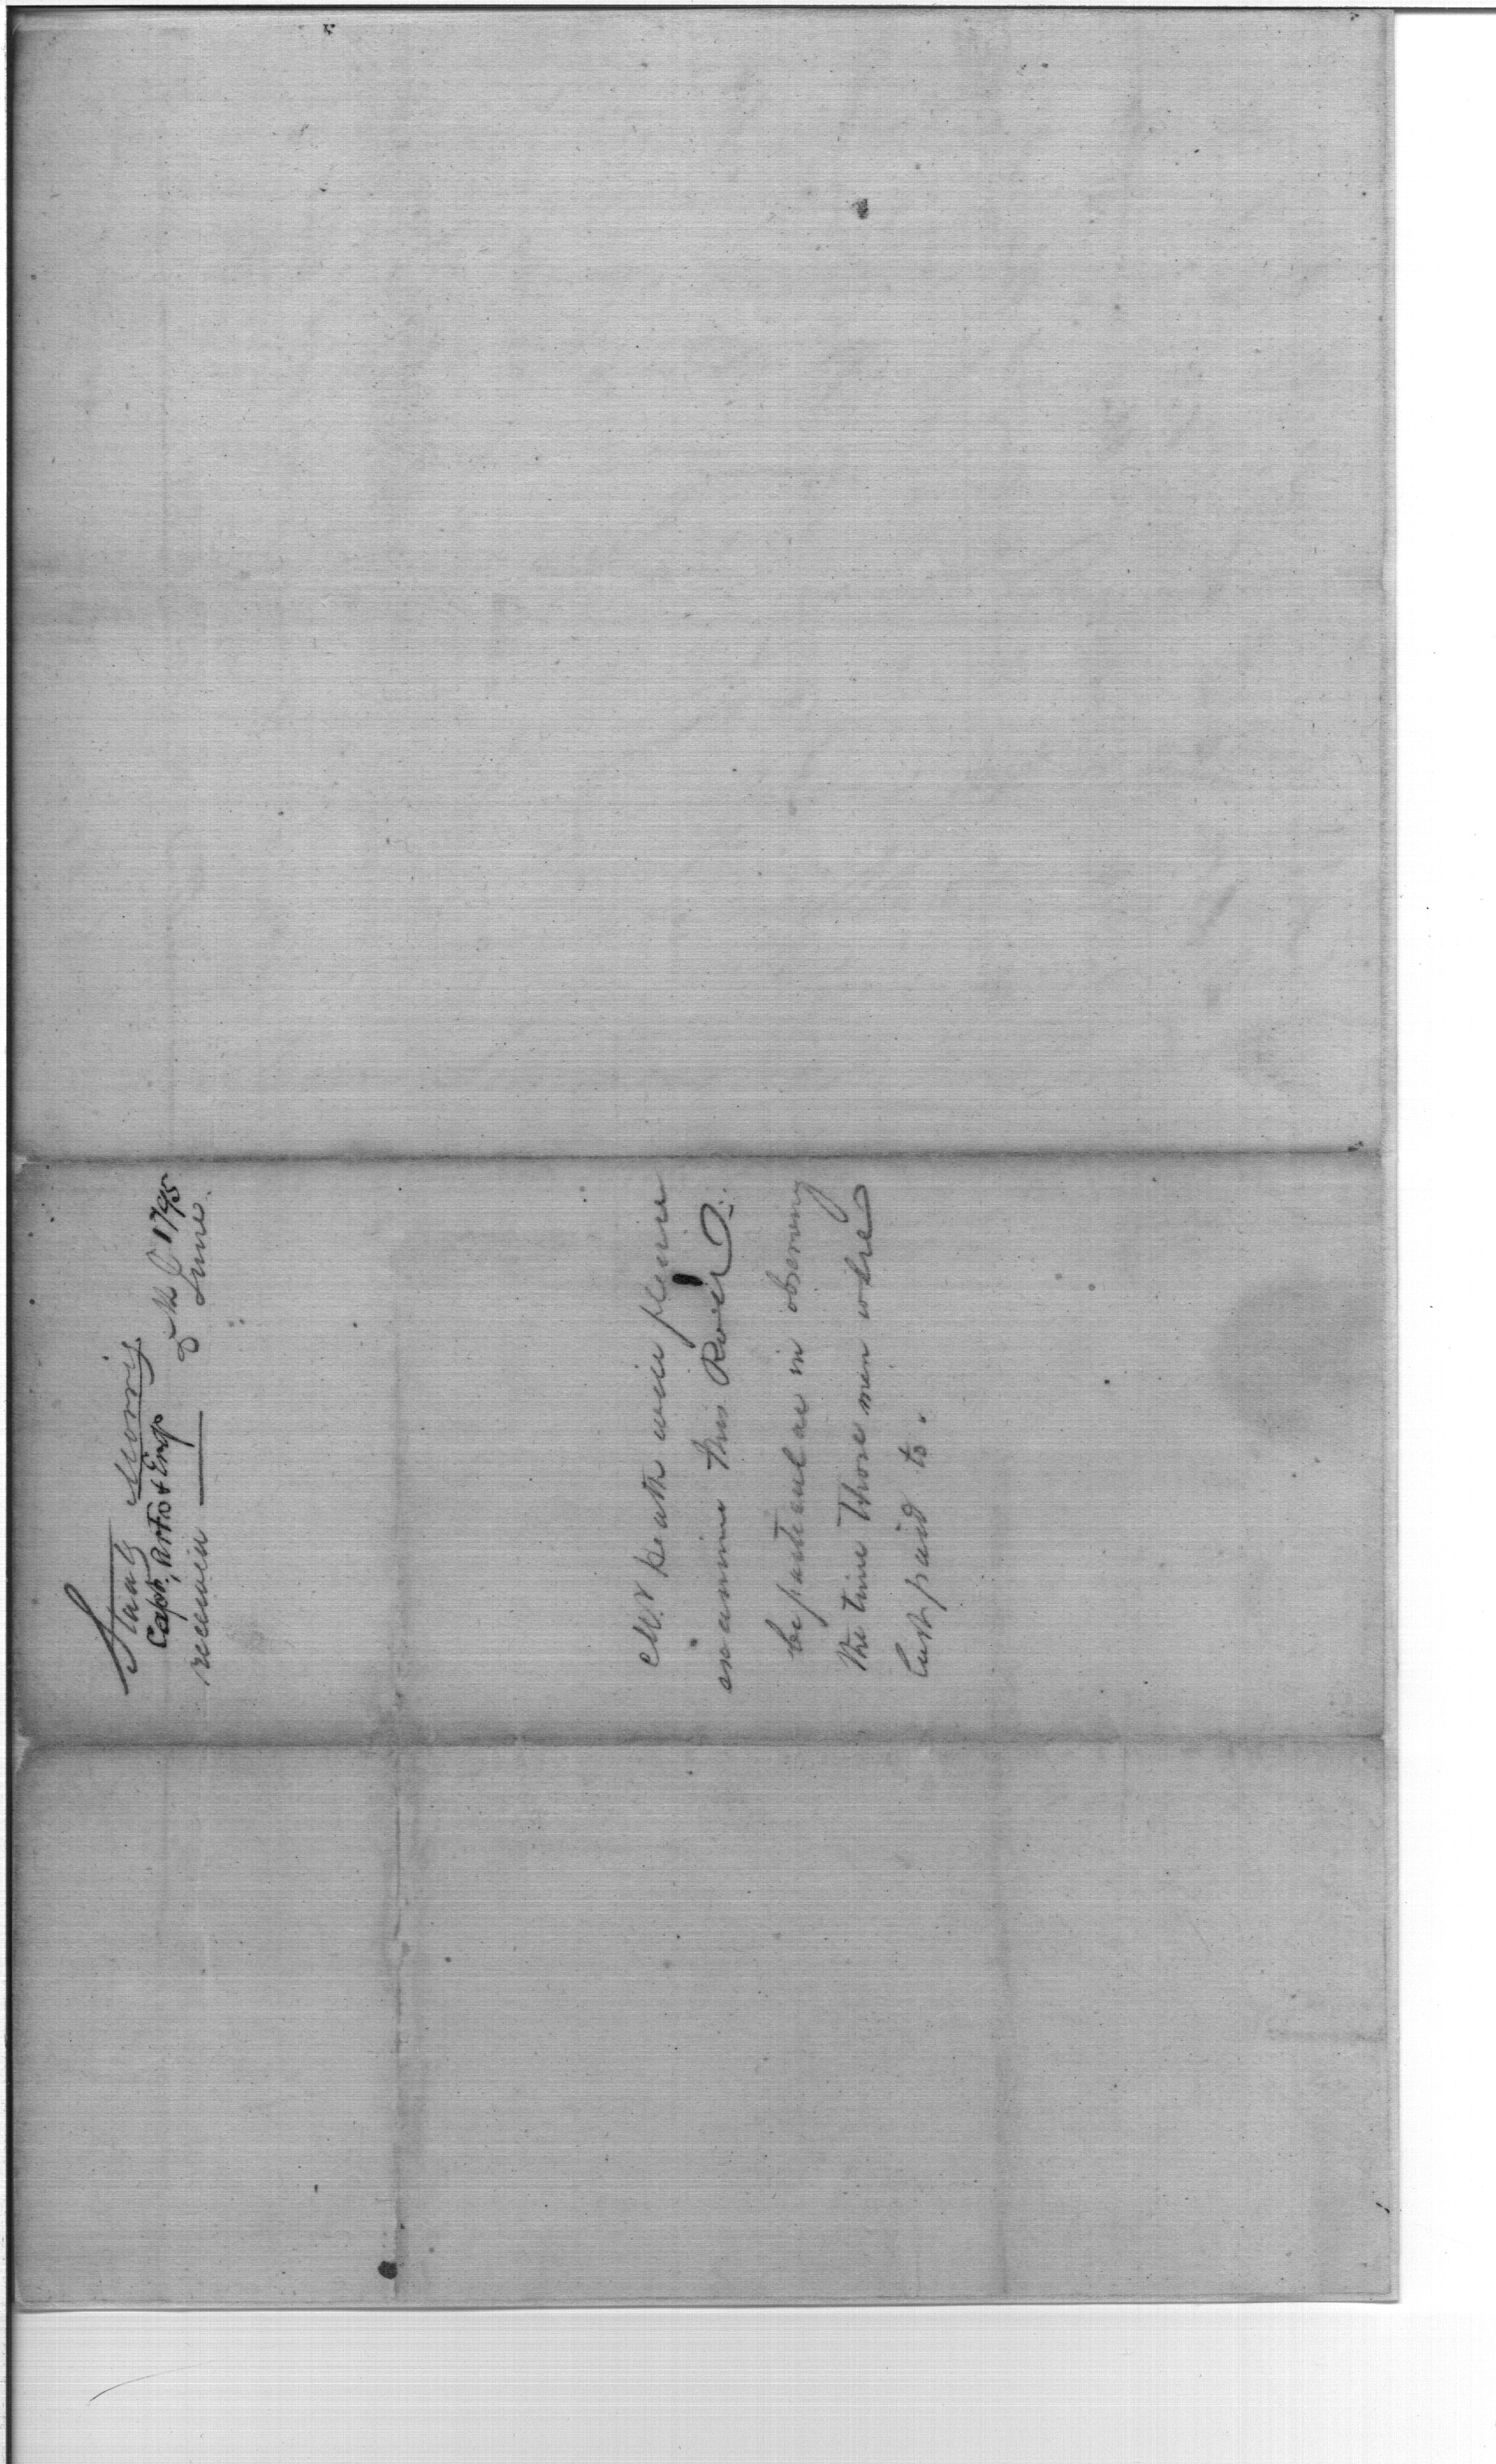 Staats Morris
Capt. Art'o & Eng'
1795
received — June.
Mr Heath will please
examine this Roll
be particular in observing
the time those men where
last paid to.